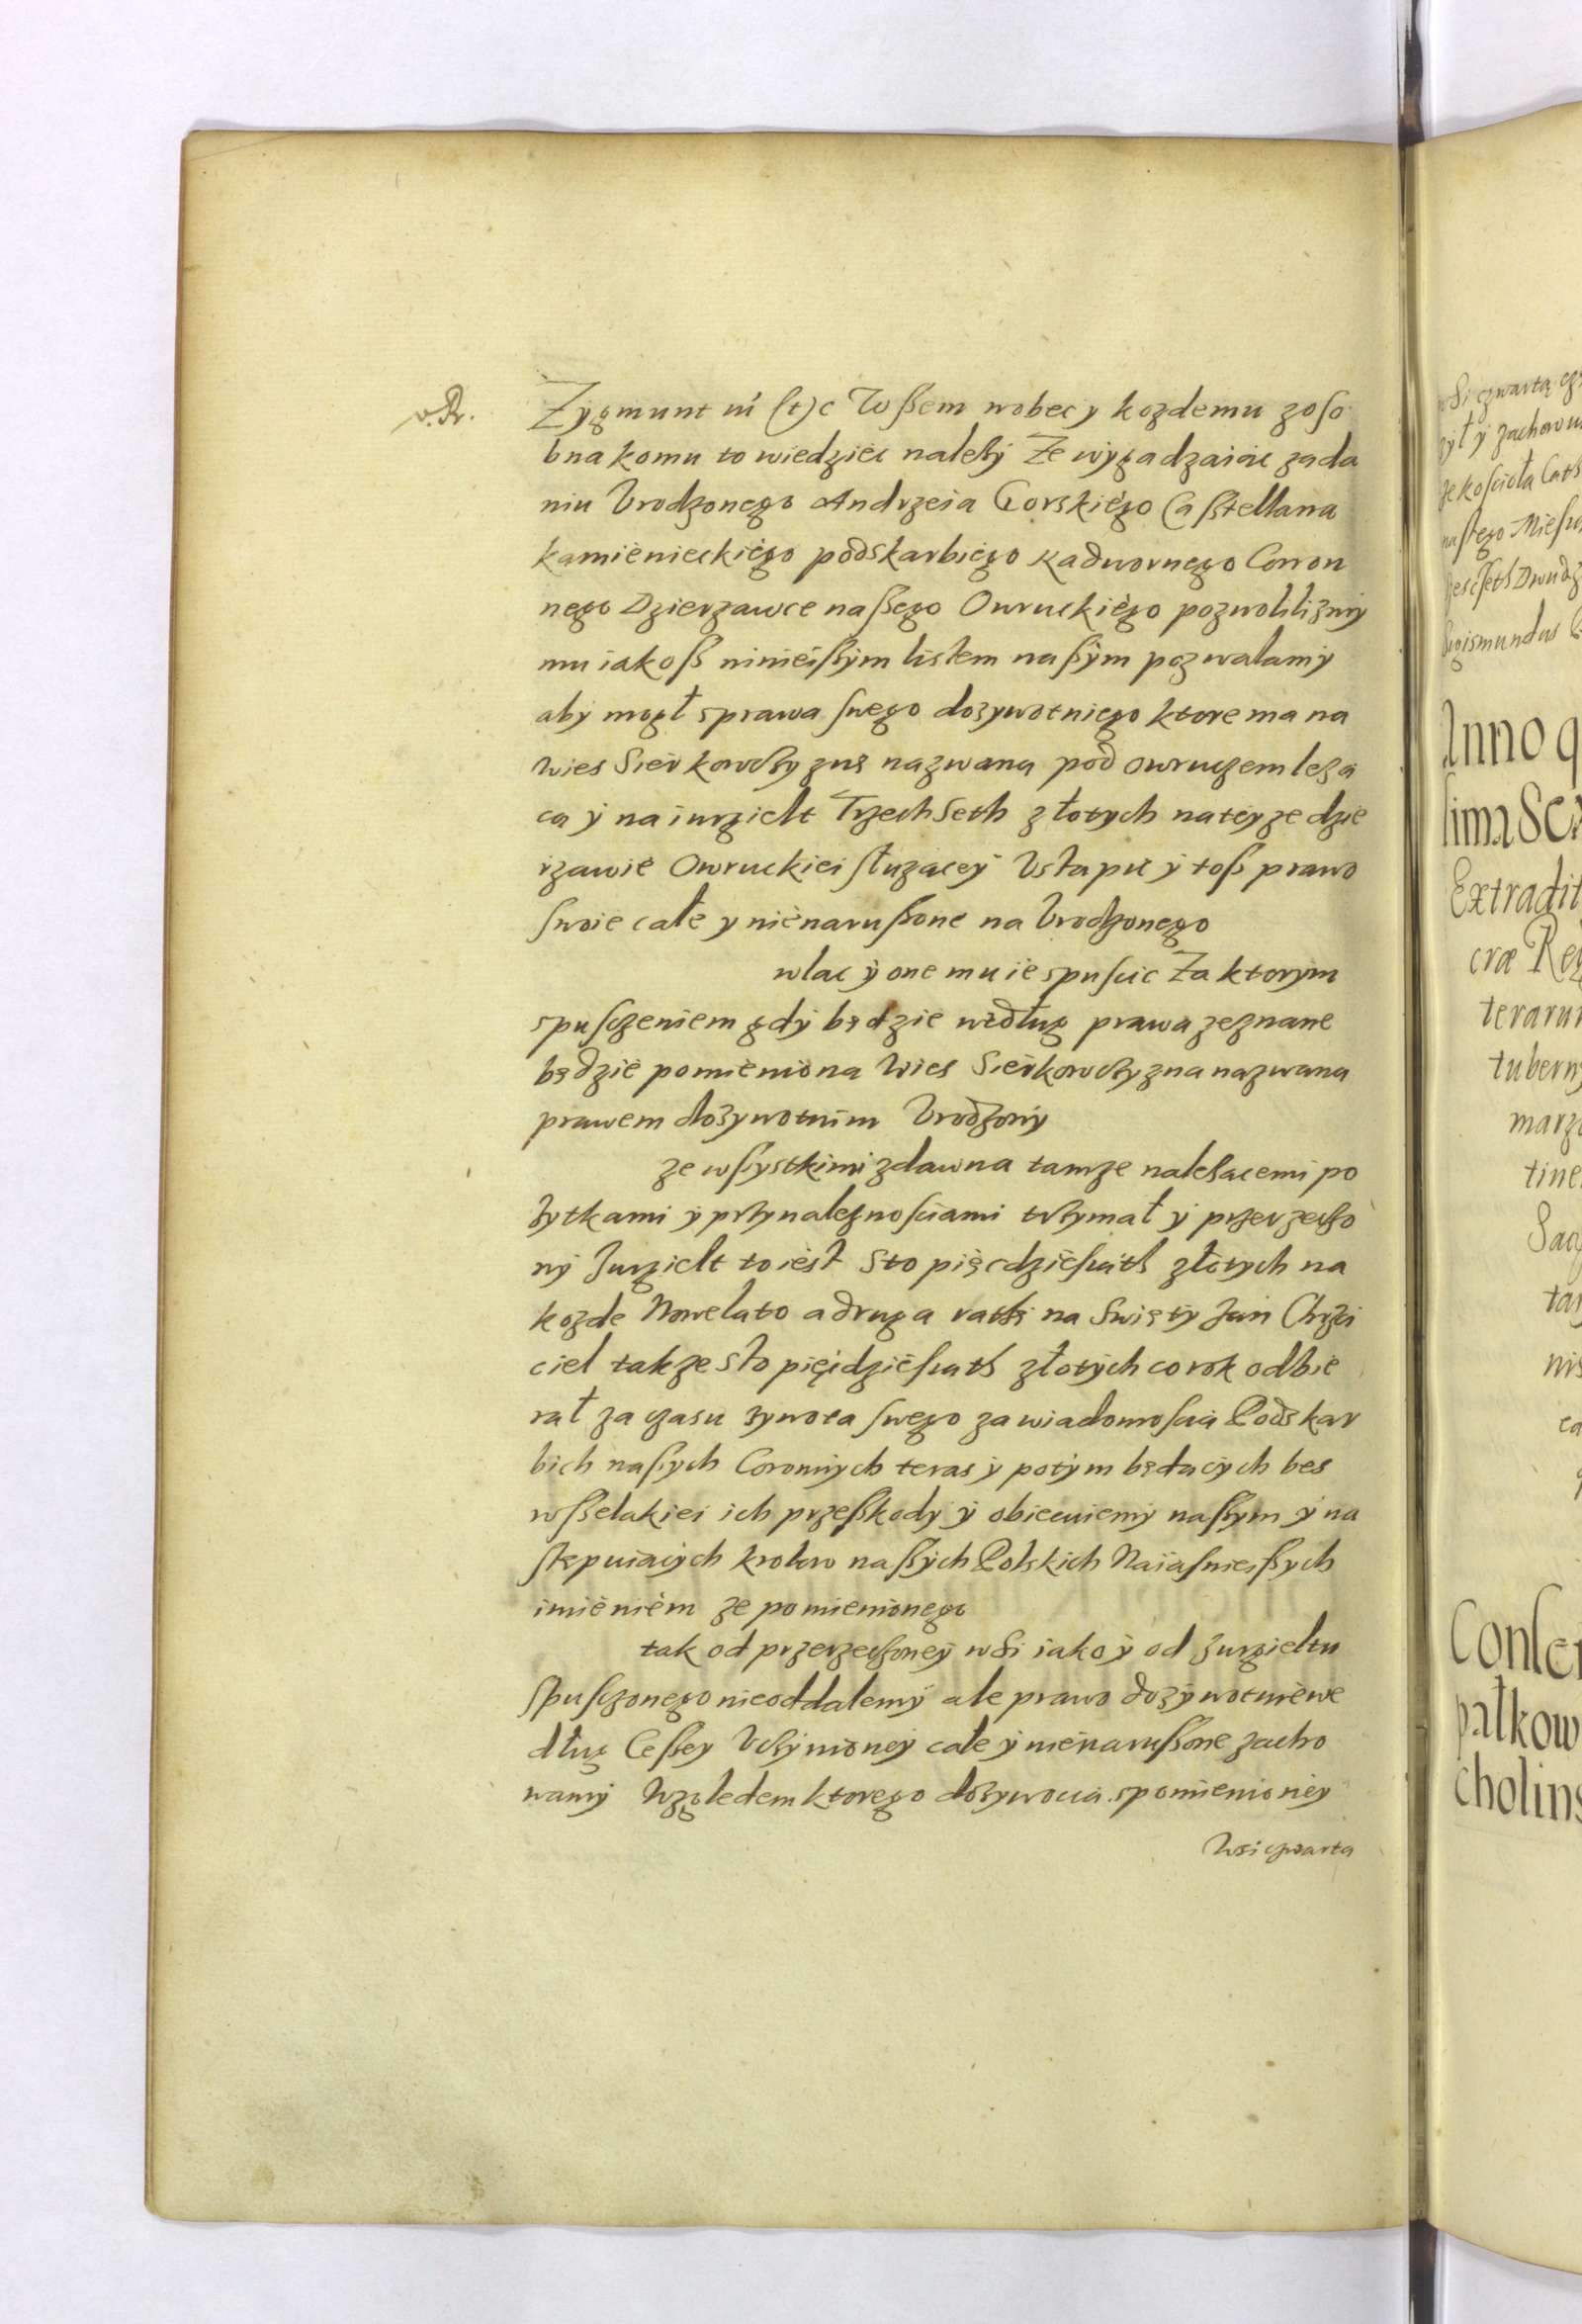 v. R.
Zygmunt III (t)c Wssem wobec y kozdemu zoso
bna komu to wiedziec nalezy Ze wygadzaiac zada
niu Urodzonego Andrzeia Gorskiego Castellana
kamienieckiego podskarbiego Nadwornego Coron
nego Dzierzawce naszego Owruckiego pozwolilizmy
mu iakosz ninieiszym listem naszym pozwalamy
aby mogł sprawa swego dozywotniego ktore ma na
wies Sierkowczyznę nazwaną pod owruczem leżą
cą y na iurgielt Trzech Seth złotych na teyze dzie
rzawie Owruckiei służącey Ustąpic y tosz prawo
swoie całe y nienaruszone na Urodzonego
wlac y one mu ie spuscic Za ktorym
spusczeniem gdy będzie według prawa zeznane
będzie pomieniona wies Sierkowczyzna nazwana
prawem dożywotnim Urodzony
ze wszystkimi zdawna tamze należacemi po
żytkami y przynaleznosciami trzymał y przerzeczo
ny Jurgielt to iest Sto pięcdziesiąth złotych na
kozde Nowe lato a druga rathę na Swięty Jan Chrzci
ciel takze sto pięcdziesiąth złotych co rok odbie
rał za czasu żywota swego za wiadomoscią Podskar
bich naszych Coronnych teras y potym będących bes
wsselakiei ich przeszkody y obiecuiemy naszym y na
stępuiących krolow naszych Polskich Naiasnieiszych
imieniem ze pomienionego
tak od przerzeczoney wsi iako y od Jurgieltu
spusczonego nieoddalemy ale prawo dożywotnie we
dług Cessey Uczynioney całe y nienaruszone zacho
wamy Względem ktorego dożywocia spomienioney
Wsi czwarta
wsi czwartą
żył y
ze koscioła Cath
Dwudz
Sigismundus
Anno q
Extradit
cræ Reg
terarum
tuberny
tine
pałkow
cholins